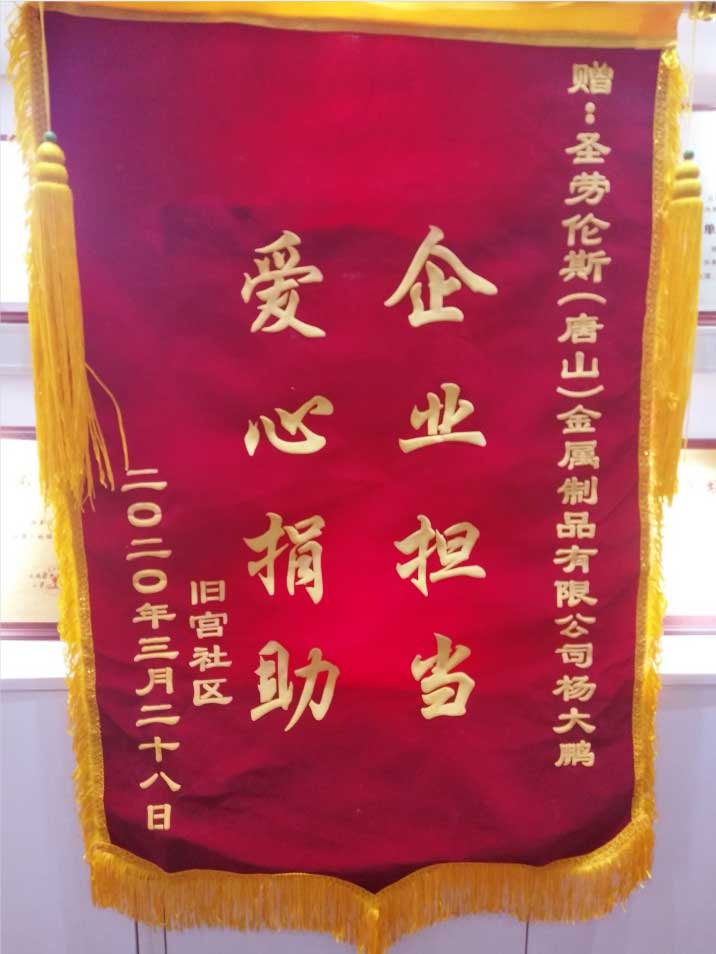 赠：圣劳伦斯(唐山)金属制品有限公司杨大鹏
企业担当
爱心捐助
旧宫社区
二〇二〇年三月二十八日